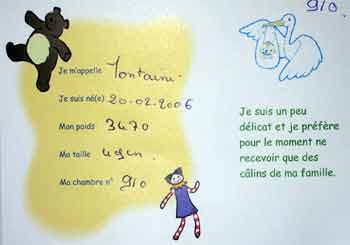 910.
Je m'appelle Fontaine.
Je suis né(e) 20.02.2006
Mon poids 3470
Ma taille
Ma chambre n° 910
Je suis un peu
délicat et je préfère
pour le moment ne
recevoir que des
câlins de ma famille.